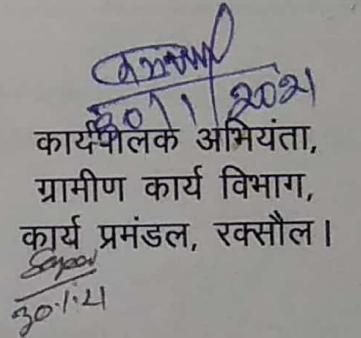 30/1/2021
कार्यपालक अभियंता,
ग्रामीण कार्य विभाग,
कार्य प्रमंडल, रक्सौल।
30.1.21